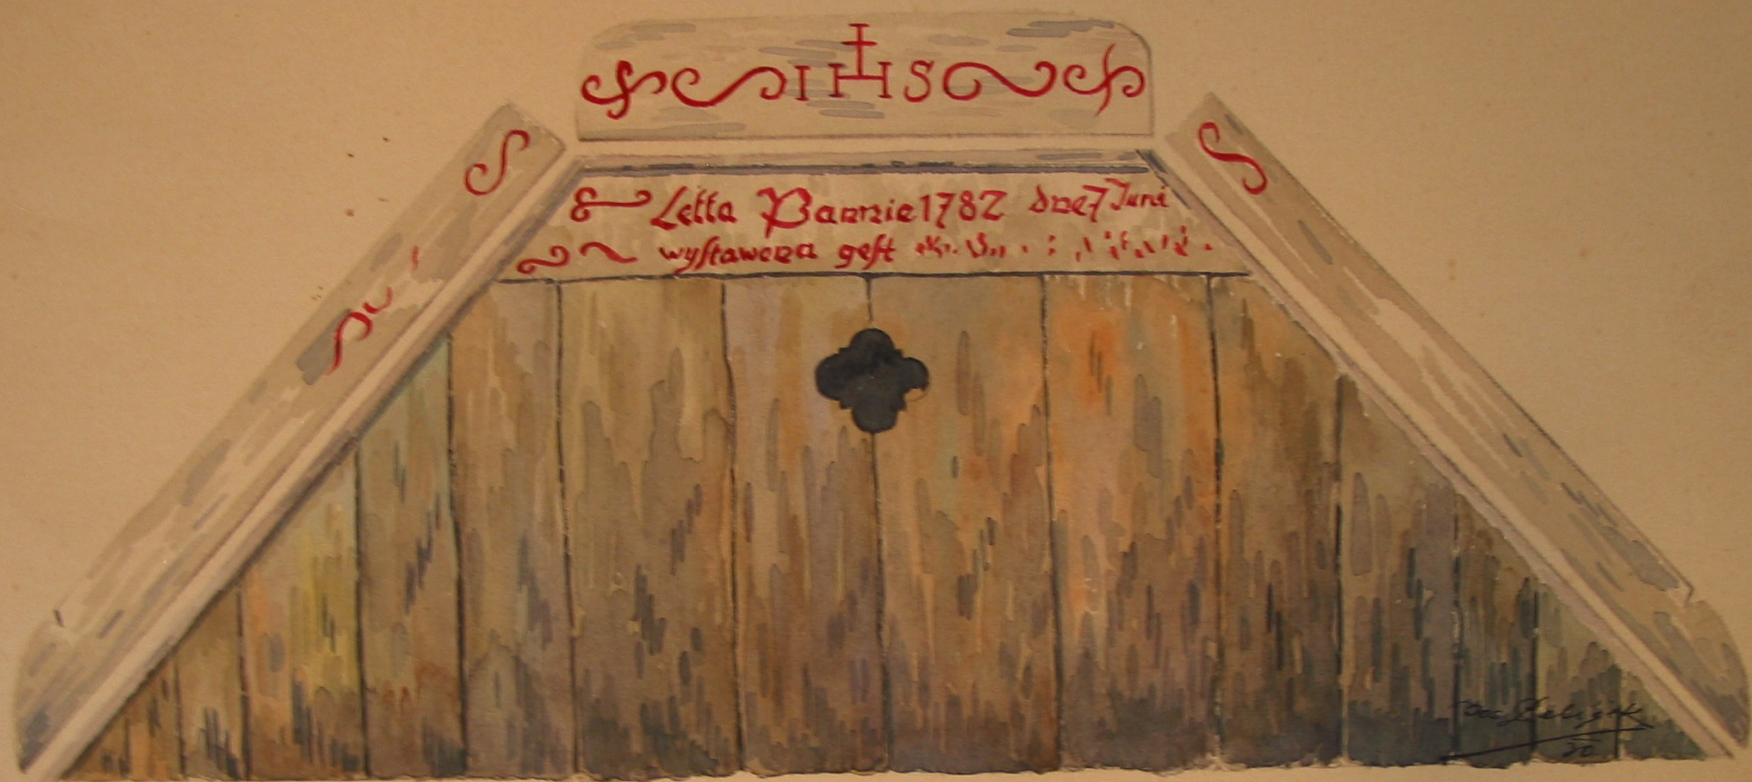 IHS
Letta Pannie 1782 dne 7 Juni
wystawena gest
20